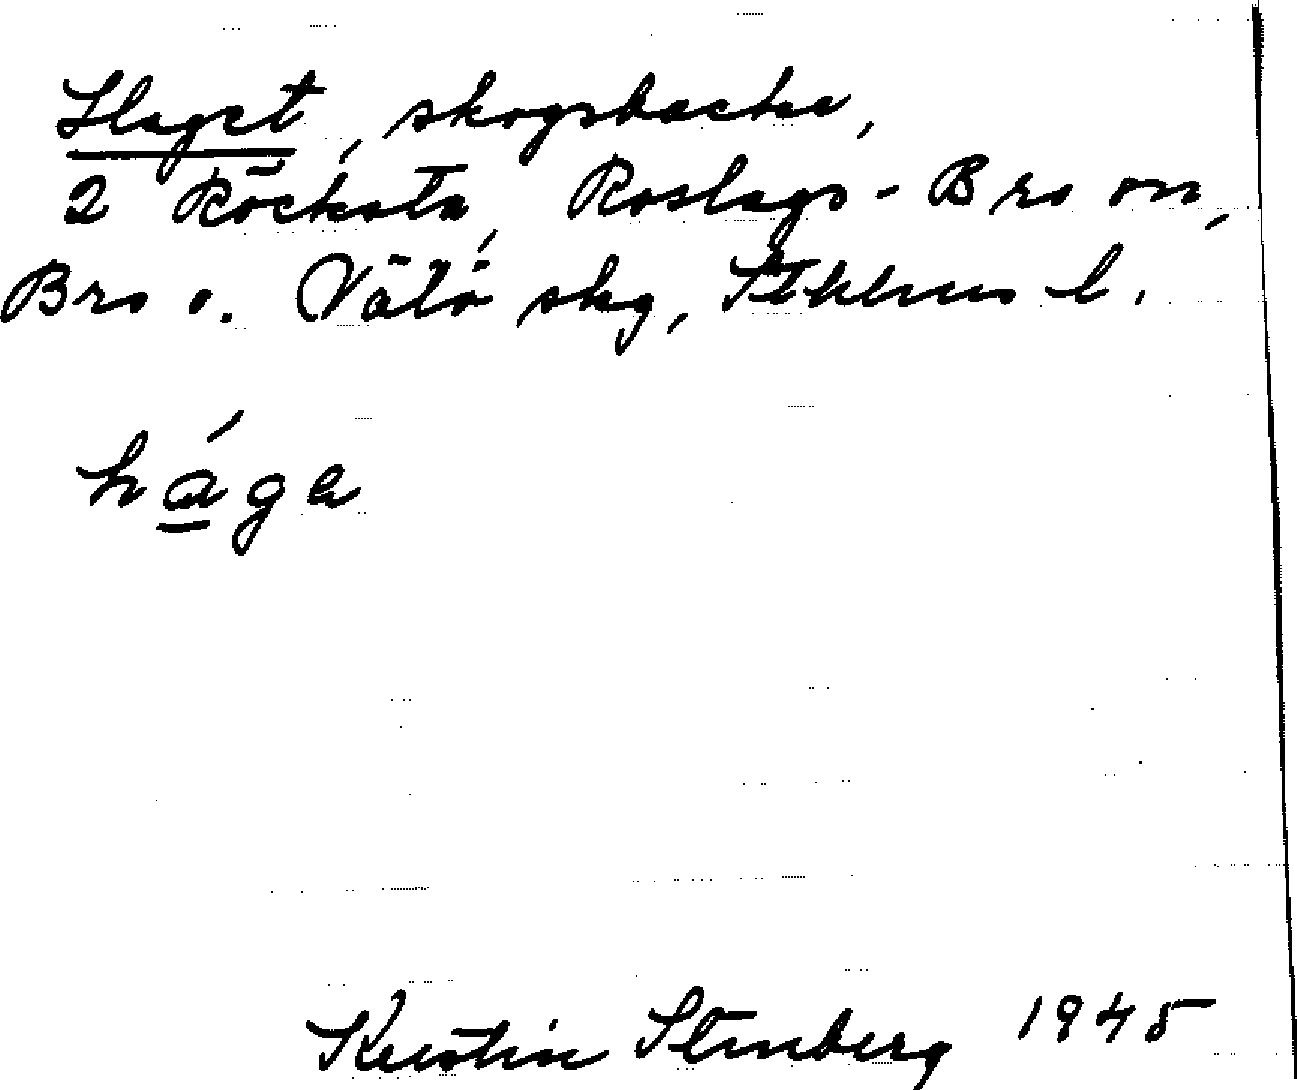 Haget, skogsbacke,
2 Röcksta, Roslags-Bro sn,
Bro o. Vätö skg, Sthlms l.
hága
Kerstin Stenberg 1945